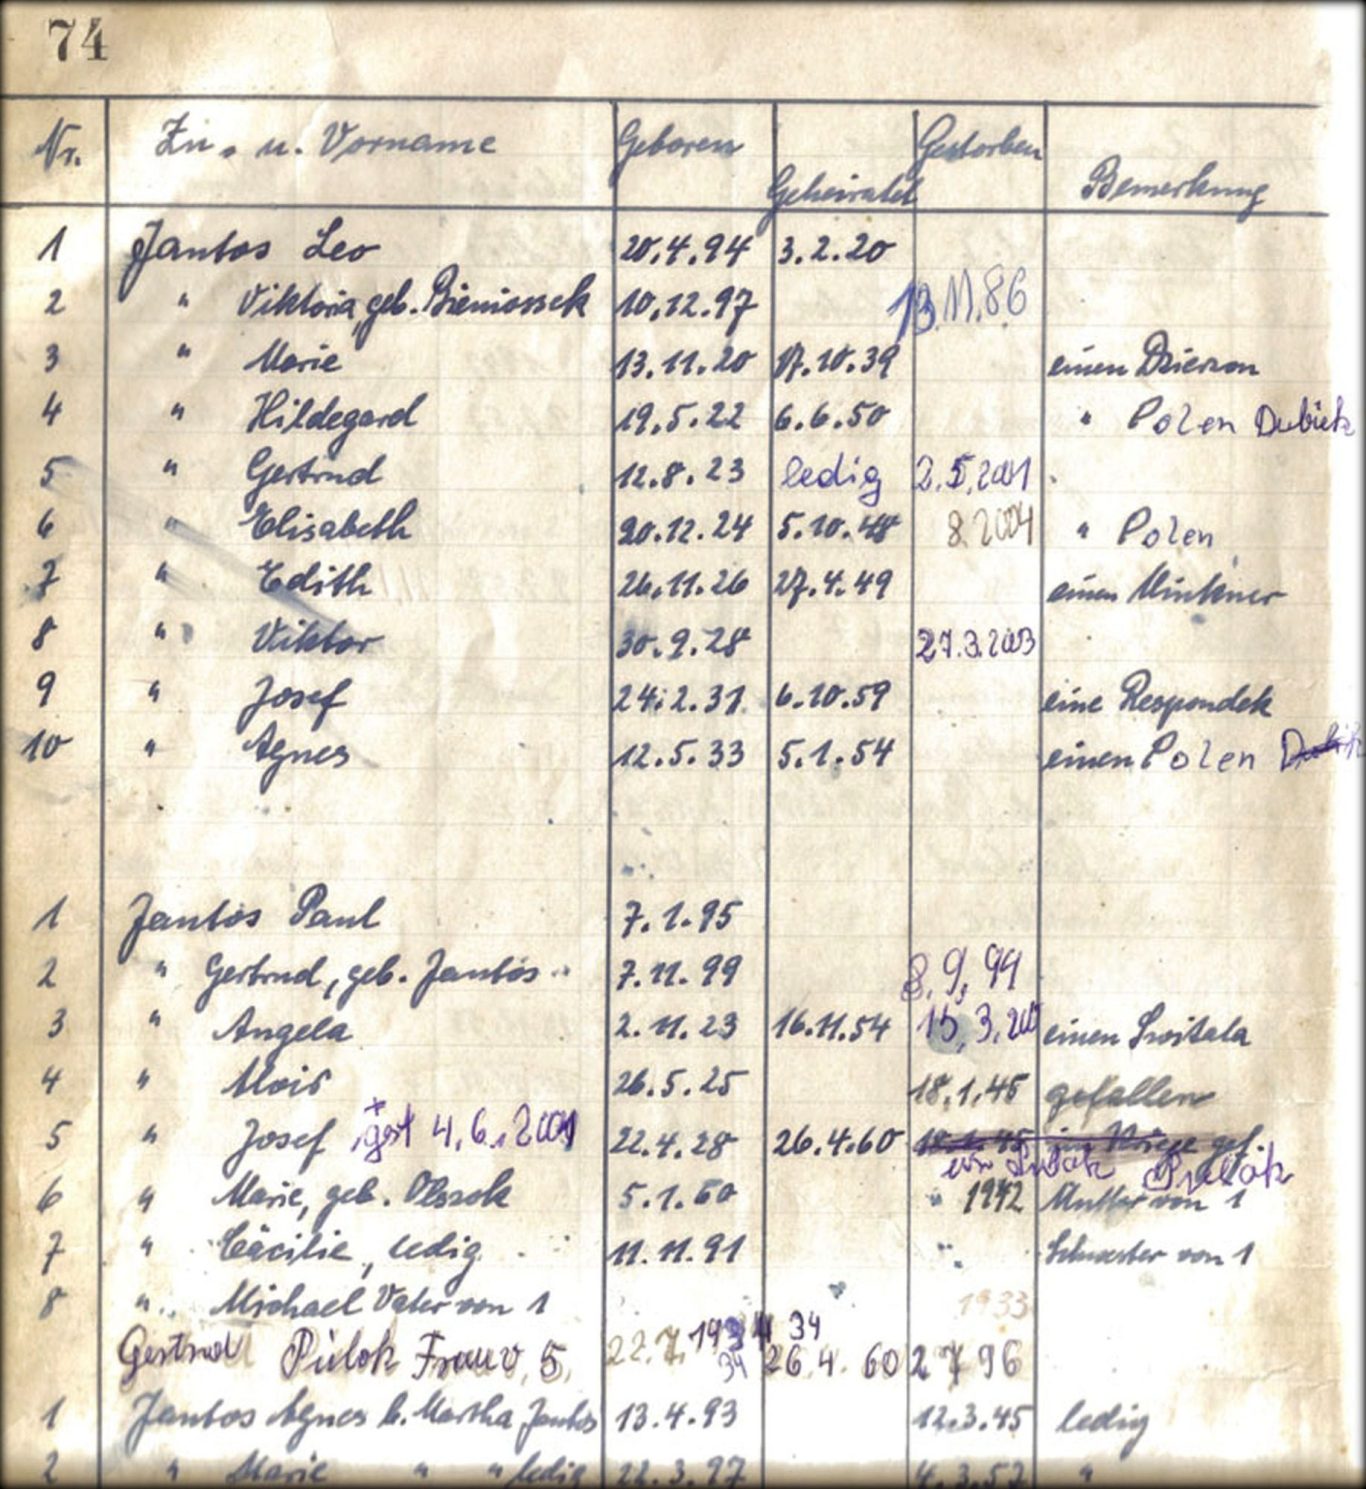 74
Nr. Zu- u. Vorname Geboren Geheiratet Gestorben Bemerkung
1 Jantos Leo 20.4.94 3.2.20
2 " Viktoria, geb. Bieniossek 10.12.97 13.11.86
3 " Marie 13.11.20 17.10.39 einen Dzierzon
4 " Hildegard 19.5.22 6.6.50 " Polen Dubiek
5 " Gertrud 12.8.23 ledig 2.5.2001
6 " Elisabeth 20.12.24 5.10.48 8.2004 " Polen
7 " Edith 26.11.26 27.4.49 einen Minkner
8 " Viktor 30.9.28 27.3.2003
9 " Josef 24.2.31 6.10.59 eine Respondek
10 " Agnes 12.5.33 5.1.54 einen Polen
1 Jantos Paul 7.1.95
2 " Gertrud, geb. Jantos 7.11.99 8.9.94
3 " Angela 2.11.23 16.11.54 15.3. einen Switala
4 " Alois 26.5.25 18.1.45 gefallen
5 " Josef gest 4.6.2001 22.4.28 26.4.60 18.1.45 im Kriege gef.
6 " Marie, geb. Olssok 5.1.60 " 1942 Mutter von 1
7 " Cäcilie, ledig 11.11.91 " Schwester von 1
8 " Michael Vater von 1 1933
Gertrud Pielok Frau v. 5. 22.7. 1934 34 26.4.60 2 7 96
1 Jantos Agnes b. Martha Jantos 13.4.93 12.3.45 ledig
2 " Marie " " ledig 22.3.97 4.3.57 "